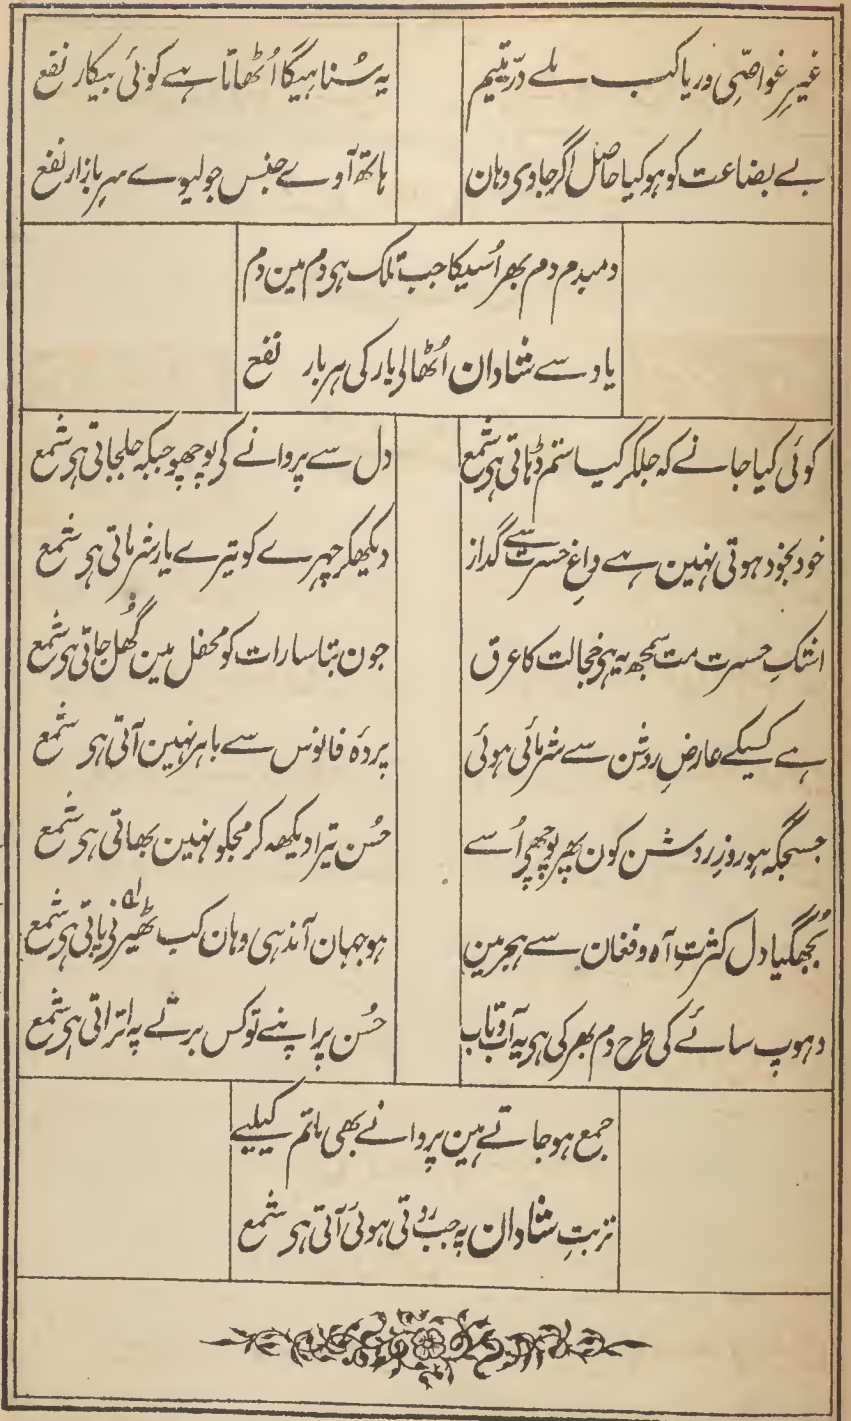 غیرِ غواصّیِ دریا کب ملے درِّ یتیم
یہ سُنا ہیگا اُٹھاتا ہے کوئی بیکار نفع
بے بضاعت کو ہو کیا حاصل اگر جاوی وہان
ہاتھ آوے جنس جو لیوے سرِ بازار نفع
دمبدم دم بھر اُسیکا جب تلک ہی دم مین دم
یاد سے شادان اُٹھا لی یار کی ہر بار نفع
کوئی کیا جانے کہ جلکر کیا ستم ڈہاتی ہی شمع
دل سے پروانے کی پوچھو جبکہ جلجاتی ہی شمع
خود بخود ہوتی نہین ہے داغِ حسرت سے گداز
دیکھکر چہرے کو تیرے یار شرماتی ہی شمع
اشکِ حسرت مت سمجھ یہ ہی خجالت کا عرق
جون بتاسا رات کو محفل مین گھُل جاتی ہی شمع
ہے کسیکے عارضِ روشن سے شرمائی ہوئی
پردۂ فانوس سے باہر نہین آتی ہی شمع
جسجگہ ہو روزِ روشن کون پھر پوچھی اُسے
حُسن تیرا دیکھ کر مجکو نہین بھاتی ہی شمع
بُجھگیا دل کثرتِ آہ و فغان سے ہجر مین
ہو جہان آندہی وہان کب ٹھیرنی پاتی ہی شمع
دہوپ سائے کی طرح دم بھر کی ہی یہ آب و تاب
حُسن پر اپنے تو کس برتے پہ اتراتی ہی شمع
جمع ہو جاتے ہین پروانے بھی ماتم کیلیے
تربتِ شادان پہ جب روتی ہوئی آتی ہی شمع